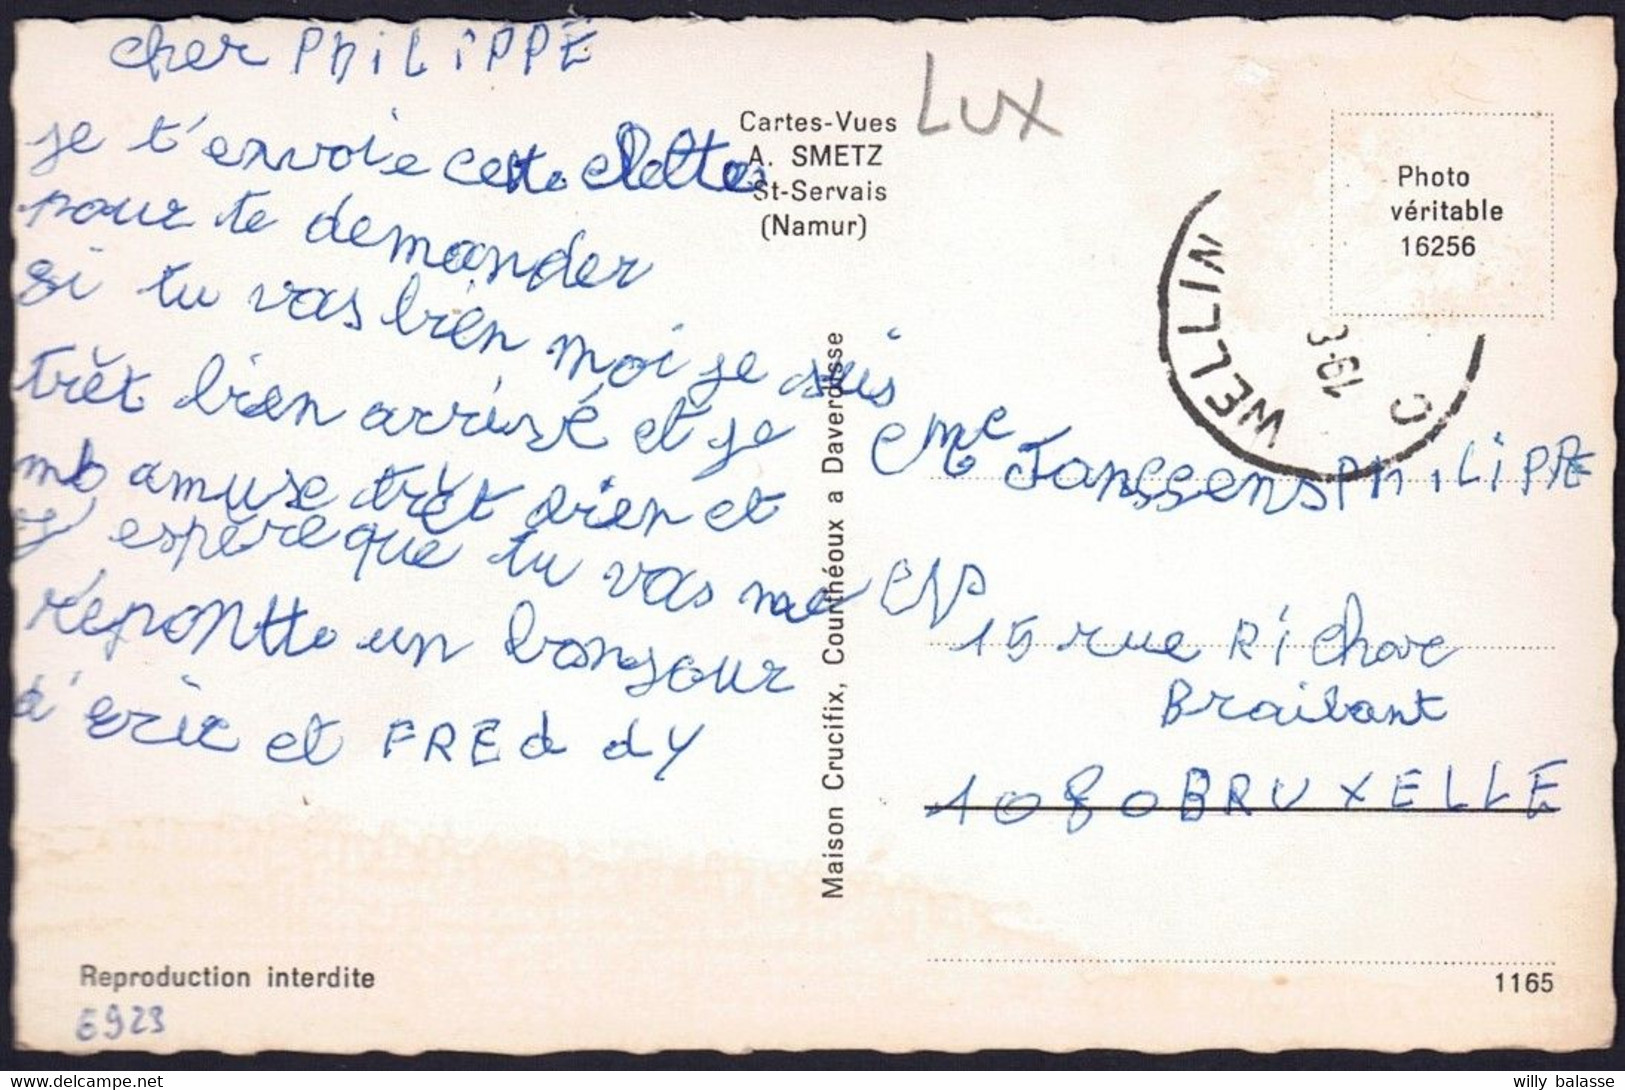 cher PhiLiPPE
je t'envoie cette
pour te demander
si tu vas bien moi je suis
trèt bien arrivé et je
amuse trèt bien et
j'espère que tu vas me
repontte un bonjour
d'eric et FREd dY
LUX
Cartes-Vues
A. SMETZ
St-Servais
(Namur)
Photo
véritable
16256
WELLIN
C
Maison Crucifix, Counthéoux a Daverdisse
Janssens PhiLiPPE
15 rue Richare
Braibant
1080 BRUXELLE
Reproduction interdite
1165
6923
willy balasse